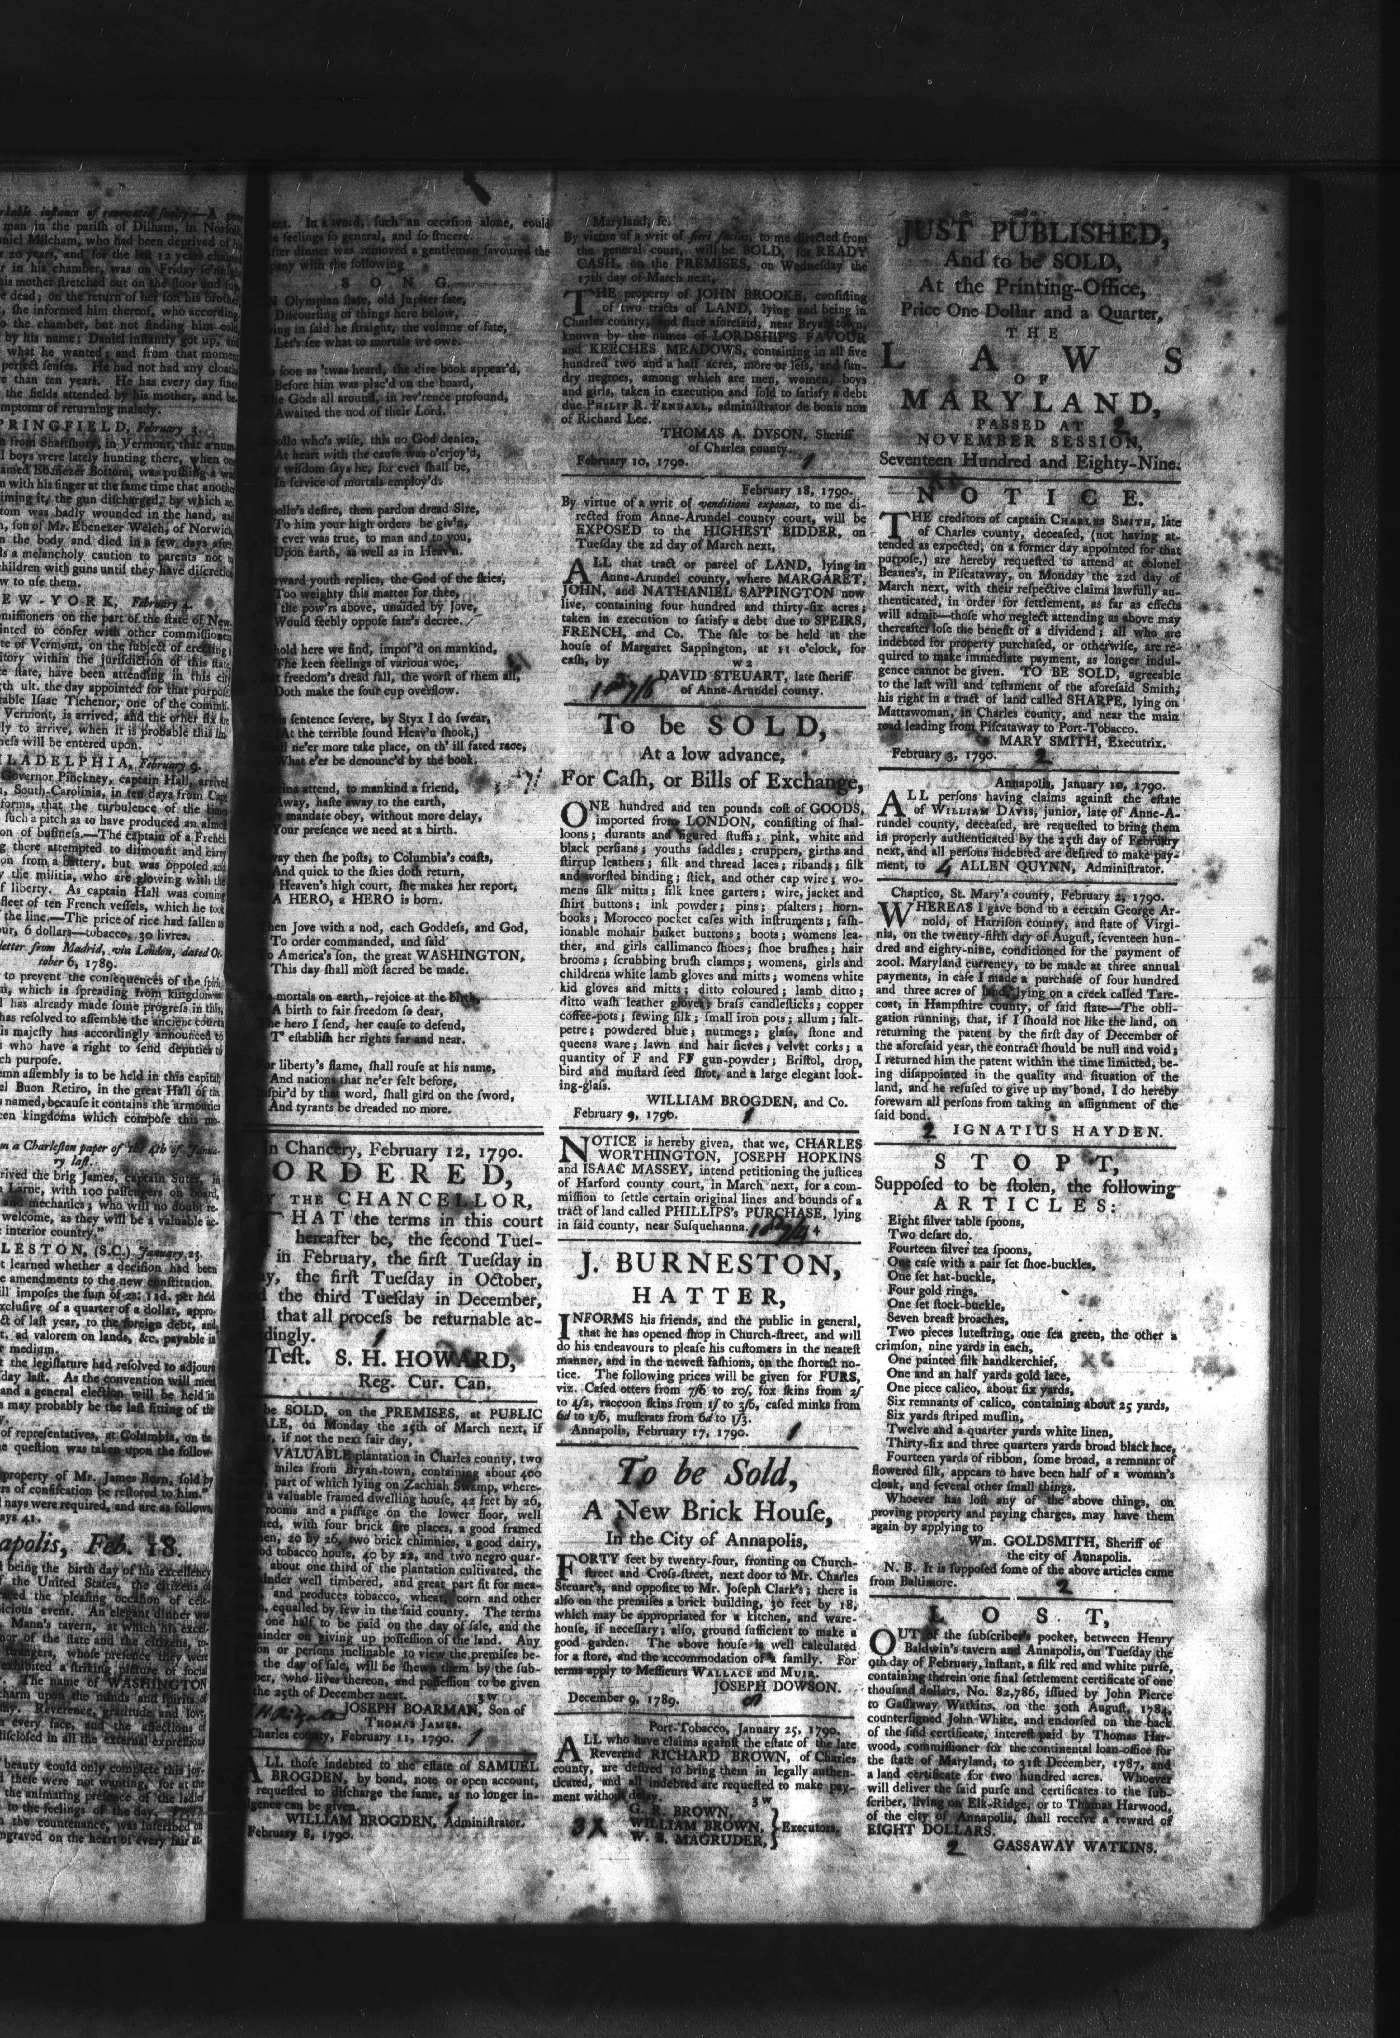 man in the parish of Dilham, in
Milcham, who had been deprived of
20 years, and for the last 12 years
in his chamber, was on Friday
his mother stretched out on the floor and
dead; on the return of her son his brother
she informed him thereof, who according
the chamber, but not finding him
by his name; Daniel instantly got up, and
what he wanted; and from that moment
perfect senses. He had not had any
than ten years. He has every day since
the fields attended by his mother, and
symptoms of returning malady.
SPRINGFIELD, February 3.
from Shaftsbury, in Vermont, that a
boys were lately hunting there, when
named Ebenezer Bottom, was pushing a
with his finger at the same time that another
the gun discharged, by which
was badly wounded in the hand, and
son of Mr. Ebenezer Welch, of Norwich
the body and died in a few days after.
is a melancholy caution to parents not to
children with guns until they have discretion
how to use them.
NEW-YORK, February 4.
commissioners on the part of the state of New-
appointed to confer with other commissioners
of Vermont, on the subject of erecting
territory within the jurisdiction of this state,
state, have been attending in this city
ult. the day appointed for that purpose.
Isaac Tichenor, one of the commis-
Vermont, is arrived, and the other six are
to arrive, when it is probable this
will be entered upon.
PHILADELPHIA, February 9.
Governor Pinckney, captain Hall, arrived
South-Carolina, in ten days from
that the turbulence of the
such a pitch as to have produced an
of business.—The captain of a French
there attempted to dismount and carry
from a battery, but was opposed
the militia, who are glowing with the
liberty. As captain Hall was coming
fleet of ten French vessels, which he took
the line.—The price of rice had fallen
6 dollars—tobacco, 30 livres.
letter from Madrid, via London, dated Oc-
tober 6, 1789.
to prevent the consequences of the spirit
which is spreading from kingdom
has already made some progress in this,
has resolved to assemble the ancient courts
majesty has accordingly announced to
who have a right to send deputies to
purpose.
assembly is to be held in this capital,
Buon Retiro, in the great Hall of the
named, because it contains the armouries
kingdoms which compose this mo-
a Charleston paper of the 4th of Janua-
ry last.
arrived the brig James, captain Suter, in
Larne, with 100 passengers on board,
and mechanics; who will no doubt re-
welcome, as they will be a valuable ac-
interior country."
CHARLESTON, (S.C.) January 25.
learned whether a decision had been
amendments to the new constitution.
imposes the sum of 2s: 11d. per head
exclusive of a quarter of a dollar, appro-
of last year, to the foreign debt, and
ad valorem on lands, &c. payable in
medium.
the legislature had resolved to adjourn
day last. As the convention will meet
and a general election will be held in
may probably be the last sitting of the
of representatives, at Columbia, on
question was taken upon the follow-
property of Mr. James Born, sold by
of confiscation be restored to him."
nays were required, and are as follows
Nays 41.
Annapolis, Feb. 18.
being the birth day of his excellency
the United States, the citizens of
the pleasing occasion of
event. An elegant dinner was
Mann's tavern, at which his
of the state and the citizens,
strangers, whose presence they were
exhibited a striking picture of social
The name of WASHINGTON
charm upon the minds and spirits of
Reverence, gratitude and love,
every face, and the affections of
disclosed in all the external expressions
beauty could only complete this joy.
these were not wanting, for at the
the animating presence of the ladies
to the feelings of the day.
the countenance, was inscribed or
engraved on the heart of every fair
In a word, such an occasion alone, could
feelings so general, and so sincere.
After dinner was removed a gentleman favoured the
company with the following
SONG.
Olympian state, old Jupiter sate,
Discoursing of things here below,
Bring in said he straight, the volume of fate,
Let's see what to mortals we owe.
soon as 'twas heard, the dire book appear'd,
Before him was plac'd on the board,
The Gods all around, in rev'rence profound,
Awaited the nod of their Lord.
Apollo who's wise, this no God denies,
At heart with the cause was o'erjoy'd,
My wisdom says he, for ever shall be,
In service of mortals employ'd.
Apollo's desire, then pardon dread Sire,
To him your high orders be giv'n,
ever was true, to man and to you,
Upon earth, as well as in Heav'n.
youth replies, the God of the skies,
Too weighty this matter for thee,
the pow'rs above, unaided by Jove,
Would feebly oppose fate's decree.
Behold here we find, impos'd on mankind,
The keen feelings of various woe,
freedom's dread fall, the worst of them all,
Doth make the sour cup overflow.
This sentence severe, by Styx I do swear,
(At the terrible sound Heav'n shook,)
Shall ne'er more take place, on th' ill fated race,
What e'er be denounc'd by the book.
attend, to mankind a friend,
Away, haste away to the earth,
mandate obey, without more delay,
Your presence we need at a birth.
Away then she posts, to Columbia's coasts,
And quick to the skies doth return,
Heaven's high court, she makes her report,
A HERO, a HERO is born.
Then Jove with a nod, each Goddess, and God,
To order commanded, and said
To America's son, the great WASHINGTON,
This day shall most sacred be made.
Ye mortals on earth, rejoice at the birth,
A birth to fair freedom so dear,
The hero I send, her cause to defend,
T' establish her rights far and near.
For liberty's flame, shall rouse at his name,
And nations that ne'er felt before,
Inspir'd by that word, shall gird on the sword,
And tyrants be dreaded no more.
In Chancery, February 12, 1790.
ORDERED,
BY THE CHANCELLOR,
THAT the terms in this court
hereafter be, the second Tues-
in February, the first Tuesday in
May, the first Tuesday in October,
the third Tuesday in December,
that all process be returnable ac-
cordingly.
Test. S. H. HOWARD,
Reg. Cur. Can.
To be SOLD, on the PREMISES, at PUBLIC
SALE, on Monday the 25th of March next, if
fair, if not the next fair day,
VALUABLE plantation in Charles county, two
miles from Bryan-town, containing about 400
part of which lying on Zachiah Swamp, where-
a valuable framed dwelling house, 42 feet by 26,
rooms and a passage on the lower floor, well
with four brick fire places, a good framed
20 by 26, two brick chimnies, a good dairy,
tobacco house, 40 by 22, and two negro quar-
about one third of the plantation cultivated, the
well timbered, and great part fit for mea-
and produces tobacco, wheat, corn and other
equalled by few in the said county. The terms
one half to be paid on the day of sale, and the
remainder on giving up possession of the land. Any
person or persons inclinable to view the premises be-
the day of sale, will be shewn them by the sub-
scriber, who lives thereon, and possession to be given
the 25th of December next. 3w
JOSEPH BOARMAN, Son of
THOMAS JAMES.
Charles county, February 11, 1790. 1
ALL those indebted to the estate of SAMUEL
BROGDEN, by bond, note or open account,
requested to discharge the same, as no longer in-
dulgence can be given.
WILLIAM BROGDEN, Administrator.
February 8, 1790.
Maryland, sc.
By virtue of a writ of fieri facias, to me directed from
the general court, will be SOLD, for READY
CASH, on the PREMISES, on Wednesday the
17th day of March next,
THE property of JOHN BROOKE, consisting
of two tracts of LAND, lying and being in
Charles county, and state aforesaid, near Bryan-town,
known by the names of LORDSHIP'S FAVOUR
and KEECHES MEADOWS, containing in all five
hundred two and a half acres, more or less, and sun-
dry negroes, among which are men, women, boys
and girls, taken in execution and sold to satisfy a debt
due PHILIP R. FENDALL, administrator de bonis non
of Richard Lee.
THOMAS A. DYSON, Sheriff
of Charles county.
February 10, 1790. 1
February 18, 1790.
By virtue of a writ of venditioni exponas, to me di-
rected from Anne-Arundel county court, will be
EXPOSED to the HIGHEST BIDDER, on
Tuesday the 2d day of March next,
ALL that tract or parcel of LAND, lying in
Anne-Arundel county, where MARGARET,
JOHN, and NATHANIEL SAPPINGTON now
live, containing four hundred and thirty-six acres;
taken in execution to satisfy a debt due to SPEIRS,
FRENCH, and Co. The sale to be held at the
house of Margaret Sappington, at 11 o'clock, for
cash, by w 2
DAVID STEUART, late sheriff
of Anne-Arundel county.
To be SOLD,
At a low advance,
For Cash, or Bills of Exchange,
ONE hundred and ten pounds cost of GOODS,
imported from LONDON, consisting of shal-
loons; durants and figured stuffs; pink, white and
black persians; youths saddles; cruppers, girths and
stirrup leathers; silk and thread laces; ribands; silk
and worsted binding; stick, and other cap wire; wo-
mens silk mitts; silk knee garters; wire, jacket and
shirt buttons; ink powder; pins; psalters; horn-
books; Morocco pocket cases with instruments; fash-
ionable mohair basket buttons; boots; womens lea-
ther, and girls callimanco shoes; shoe brushes; hair
brooms; scrubbing brush clamps; womens, girls and
childrens white lamb gloves and mitts; womens white
kid gloves and mitts; ditto coloured; lamb ditto;
ditto wash leather gloves; brass candlesticks; copper
coffee-pots; sewing silk; small iron pots; allum; salt-
petre; powdered blue; nutmegs; glass, stone and
queens ware; lawn and hair sieves; velvet corks; a
quantity of F and FF gun-powder; Bristol, drop,
bird and mustard seed shot, and a large elegant look-
ing-glass.
WILLIAM BROGDEN, and Co.
February 9, 1790. 1
NOTICE is hereby given, that we, CHARLES
WORTHINGTON, JOSEPH HOPKINS
and ISAAC MASSEY, intend petitioning the justices
of Harford county court, in March next, for a com-
mission to settle certain original lines and bounds of a
tract of land called PHILLIPS's PURCHASE, lying
in said county, near Susquehanna.
J. BURNESTON,
HATTER,
INFORMS his friends, and the public in general,
that he has opened shop in Church-street, and will
do his endeavours to please his customers in the neatest
manner, and in the newest fashions, on the shortest no-
tice. The following prices will be given for FURS,
viz. Cased otters from 7/6 to 20/, fox skins from 2/
to 4/2, raccoon skins from 1/ to 3/6, cased minks from
6d to 1/6, muskrats from 6d to 1/3.
Annapolis, February 17, 1790. 1
To be Sold,
A New Brick House,
In the City of Annapolis,
FORTY feet by twenty-four, fronting on Church-
street and Cross-street, next door to Mr. Charles
Steuart's, and opposite to Mr. Joseph Clark's; there is
also on the premises a brick building, 30 feet by 18,
which may be appropriated for a kitchen, and ware-
house, if necessary; also, ground sufficient to make a
good garden. The above house is well calculated
for a store, and the accommodation of a family. For
terms apply to Messieurs WALLACE and MUIR.
JOSEPH DOWSON.
December 9, 1789.
Port-Tobacco, January 25, 1790.
ALL who have claims against the estate of the late
Reverend RICHARD BROWN, of Charles
county, are desired to bring them in legally authen-
ticated, and all indebted are requested to make pay-
ment without delay. 3 w
G. R. BROWN,
WILLIAM BROWN, } Executors.
W. B. MAGRUDER,
3X
JUST PUBLISHED,
And to be SOLD,
At the Printing-Office,
Price One Dollar and a Quarter,
THE
LAWS
OF
MARYLAND,
PASSED AT 2
NOVEMBER SESSION,
Seventeen Hundred and Eighty-Nine.
NOTICE.
THE creditors of captain CHARLES SMITH, late
of Charles county, deceased, (not having at-
tended as expected, on a former day appointed for that
purpose,) are hereby requested to attend at colonel
Beanes's, in Piscataway, on Monday the 22d day of
March next, with their respective claims lawfully au-
thenticated, in order for settlement, as far as effects
will admit—those who neglect attending as above may
thereafter lose the benefit of a dividend; all who are
indebted for property purchased, or otherwise, are re-
quired to make immediate payment, as longer indul-
gence cannot be given. TO BE SOLD, agreeable
to the last will and testament of the aforesaid Smith,
his right in a tract of land called SHARPE, lying on
Mattawoman, in Charles county, and near the main
road leading from Piscataway to Port-Tobacco.
MARY SMITH, Executrix.
February 3, 1790. 2
Annapolis, January 10, 1790.
ALL persons having claims against the estate
of WILLIAM DAVIS, junior, late of Anne-A-
rundel county, deceased, are requested to bring them
in properly authenticated by the 25th day of February
next, and all persons indebted are desired to make pay-
ment, to 4 ALLEN QUYNN, Administrator.
Chaptico, St. Mary's county, February 2, 1790.
WHEREAS I gave bond to a certain George Ar-
nold, of Harrison county, and state of Virgi-
nia, on the twenty-fifth day of August, seventeen hun-
dred and eighty-nine, conditioned for the payment of
200l. Maryland currency, to be made at three annual
payments, in case I made a purchase of four hundred
and three acres of land, lying on a creek called Tare-
coat, in Hampshire county, of said state—The obli-
gation running, that, if I should not like the land, on
returning the patent by the first day of December of
the aforesaid year, the contract should be null and void;
I returned him the patent within the time limitted, be-
ing disappointed in the quality and situation of the
land, and he refused to give up my bond, I do hereby
forewarn all persons from taking an assignment of the
said bond.
2 IGNATIUS HAYDEN.
STOPT,
Supposed to be stolen, the following
ARTICLES:
Eight silver table spoons,
Two desart do.
Fourteen silver tea spoons,
One case with a pair set shoe-buckles,
One set hat-buckle,
Four gold rings,
One set stock-buckle,
Seven breast broaches,
Two pieces lutestring, one sea green, the other a
crimson, nine yards in each,
One painted silk handkerchief,
One and an half yards gold lace,
One piece calico, about six yards,
Six remnants of calico, containing about 25 yards,
Six yards striped muslin,
Twelve and a quarter yards white linen,
Thirty-six and three quarters yards broad black lace,
Fourteen yards of ribbon, some broad, a remnant of
flowered silk, appears to have been half of a woman's
cloak, and several other small things.
Whoever has lost any of the above things, on
proving property and paying charges, may have them
again by applying to
Wm. GOLDSMITH, Sheriff of
the city of Annapolis.
N. B. It is supposed some of the above articles came
from Baltimore. 2
LOST,
OUT of the subscriber's pocket, between Henry
Baldwin's tavern and Annapolis, on Tuesday the
9th day of February, instant, a silk red and white purse,
containing therein one final settlement certificate of one
thousand dollars, No. 82,786, issued by John Pierce
to Gassaway Watkins, on the 30th August, 1784,
countersigned John White, and endorsed on the back
of the said certificate, interest paid by Thomas Har-
wood, commissioner for the continental loan-office for
the state of Maryland, to 31st December, 1787, and
a land certificate for two hundred acres. Whoever
will deliver the said purse and certificates to the sub-
scriber, living on Elk-Ridge, or to Thomas Harwood,
of the city of Annapolis, shall receive a reward of
EIGHT DOLLARS.
2 GASSAWAY WATKINS.